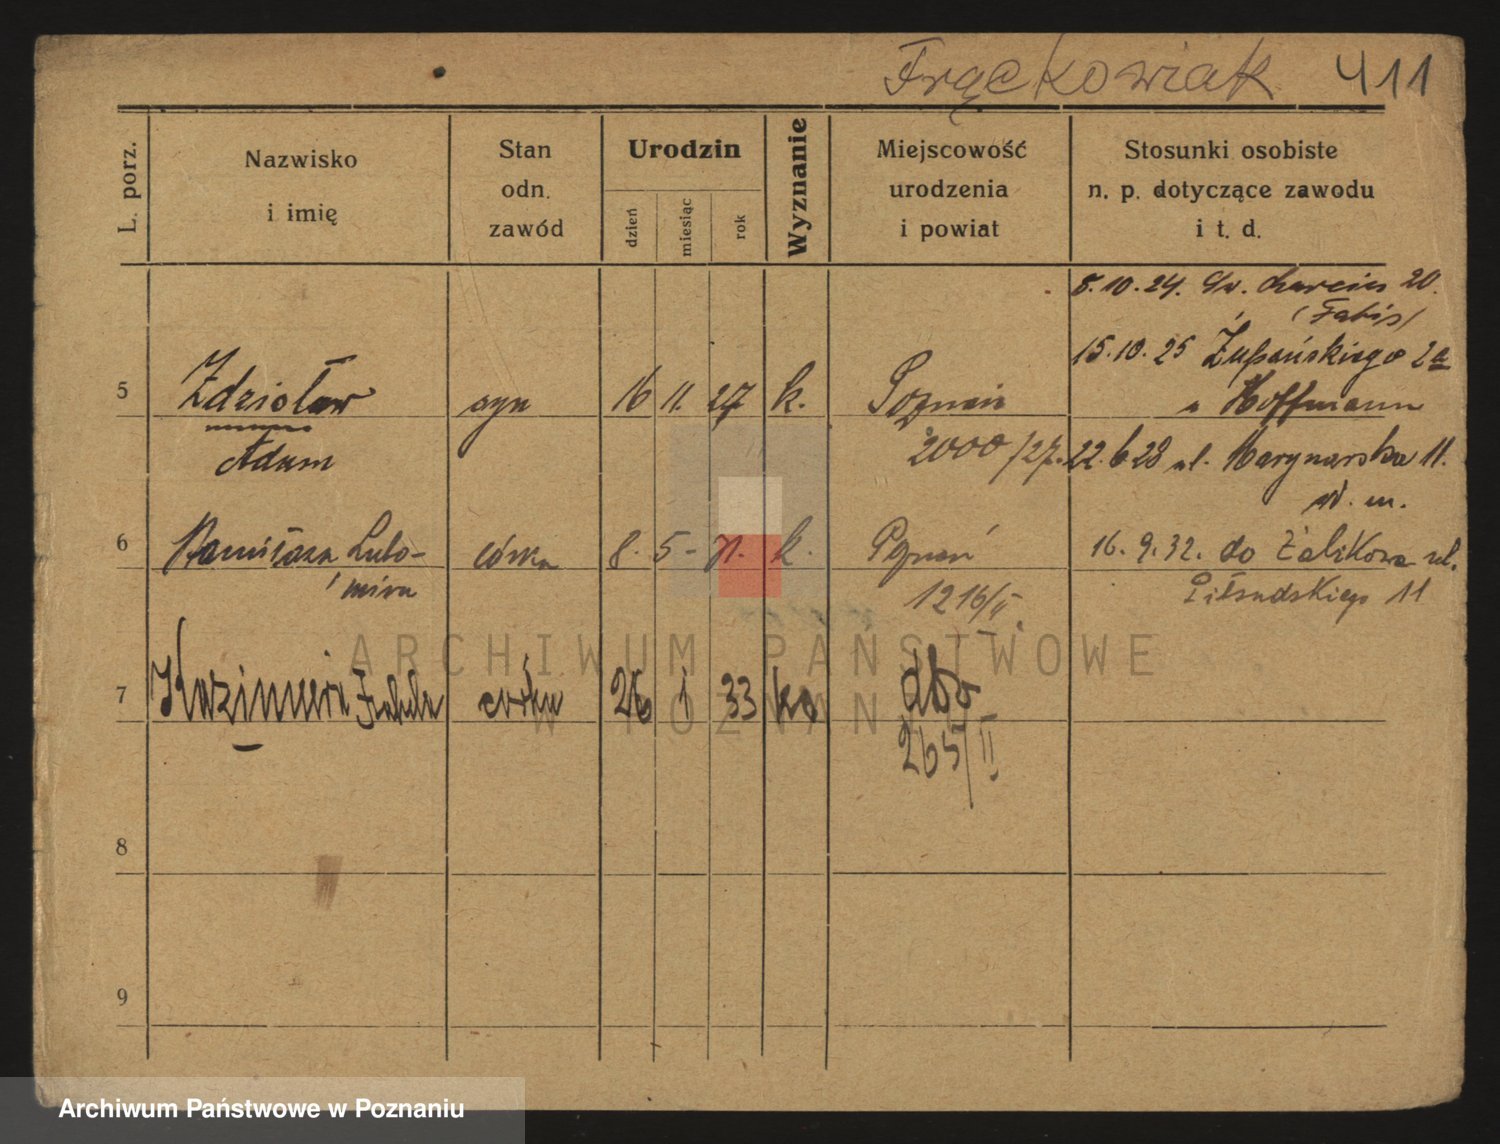 Frąckowiak 411
L. porz.
Nazwisko
i imię
Stan
odn.
zawód
Urodzin
dzień
miesiąc
rok
Wyznanie
Miejscowość
urodzenia
i powiat
Stosunki osobiste
n. p. dotyczące zawodu
i t. d.
8.10.24. Św. Marcin 20.
15.10.25 Żupańskiego 2a
5 Zdzisław syn 16 11. 27 k. Poznań
u Hoffmann
Adam
2000/27.
22.6.28 ul. Marynarska 11.
6 Lubo-
mira córka 8. 5- 31. k. Poznań
1216/II.
16. 9.32. do Żabikowa ul.
Piłsudskiego 11
7 Kazimiera Izabela córka 26 1 33 dto
265/II
8
9
ARCHIWUM PAŃSTWOWE
W POZNANIU
Archiwum Państwowe w Poznaniu